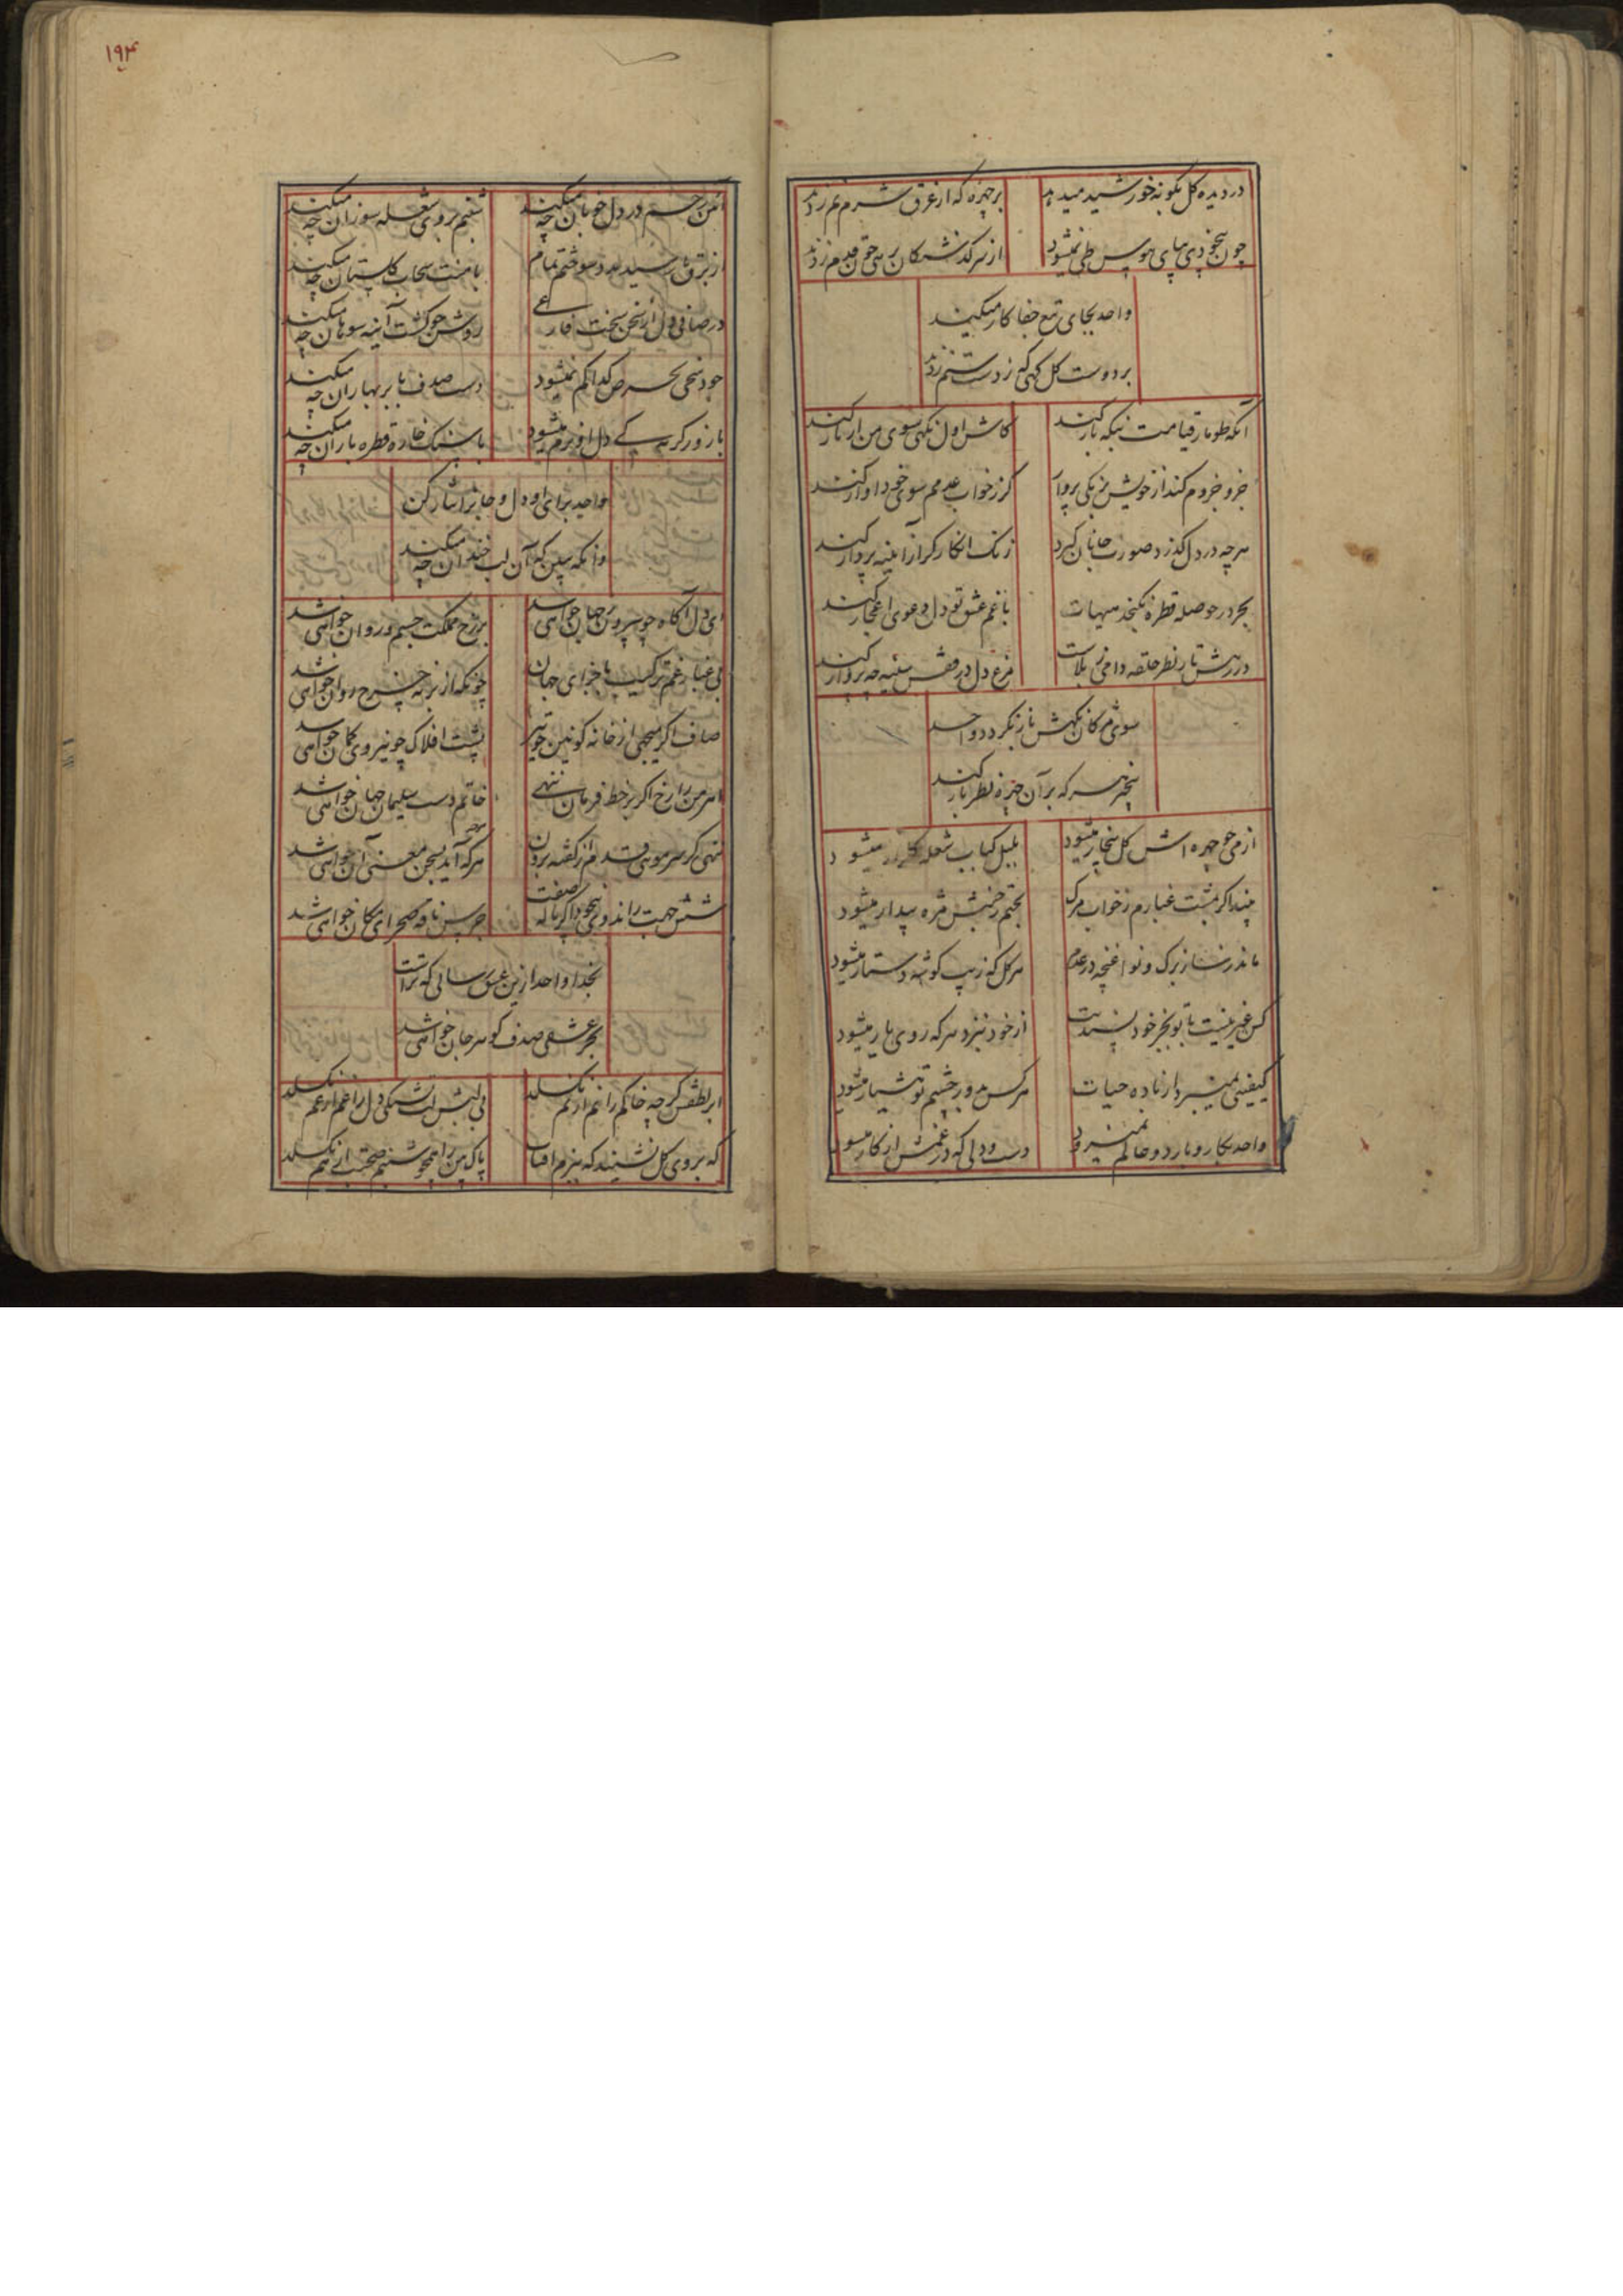 در دیده گل بگونه خورشید میدهد
بر چهره که از عرق شرم نم زدند
چون بیخودی بپای هوس طی نمیشود
از سر گذشتگان بره حق قدم زدند
واحد بجای تیغ جفا کار میکند
بر دوست گل کهی که ز دست ستم زدند
آنکه طومار قیامت بنگه باز کند
کاش اول نگهی سوی من از ناز کند
جزو جزوم کند از خویش ز یکی پرواز
گر ز خواب عدمم سوی خود آواز کند
هر چه در دل گذرد صورت جانان گیرد
زنگ انکار گر از آینه پرداز کند
بحر در حوصله قطره نگنجد هیهات
با غم عشق تو دل دعوی اعجاز کند
در رهش تار نظر حلقه دامی ز بلاست
مرغ دل در قفس سینه چه پرواز کند
سوی مژگان نگهش باز نگردد واحد
هر که بر آن چهره نظر باز کند
از می چو چهره اش گل بیخار میشود
بلبل کباب شعله میشود
مپندار گر مشت غبارم ز خواب مرگ
بختم ز جنبش مژه بیدار میشود
ماند ز ساز برگ و نوا غنچه در عدم
هر گل که زیب گوشه دستار میشود
کس غیر نیست با تو بجز خود پسندیت
از خود نبرد هر که ز وی یار میشود
کیفیتی نمیبرد از باده حیات
هر کس بدور چشم تو هشیار میشود
واحد بکار و بار دو عالم نمیرود
دست و دلی که در غمش از کار میشود
۱۹۴
آهن رحم در دل خوبان چه میکند
شبنم بروی شعله سوزان چه میکند
از برق رسید و سوختم تمام
با منت سحاب گلستان چه میکند
در صافی دل از سخن سخت فارغی
روشن چو گشت آینه سوهان چه میکند
جود سخی بحرص گدا کم نمیشود
دست صدف بابر بهاران چه میکند
با زور گریه کی دل او نرم میشود
با سنگ خاره قطره باران چه میکند
واحد برای او دل و جانرا نثار کن
وانگه ببین که آن لب خندان چه میکند
ای دل آگاه چو بیرون ز جهان خواهی شد
برزخ مملکت جسم و روان خواهی شد
بی غبار غم ترکیب باجزای جهان
چونکه از نه چرخ روان خواهی شد
صاف اگر بجهی از خانه کونین چو تیر
پشت افلاک چو نیروی کمان خواهی شد
اهرمن را رخ اگر بر خط فرمان ننهی
خاتم دست سلیمان جهان خواهی شد
ننهی گر سر موئی قدم از گفته برون
هر که آید بسخن معنی آن خواهی شد
شش جهت را ندوی بیخود اگر ناله صفت
جرس ناقه صحرای مکان خواهی شد
بخدا واحد ازین عشق رسائی که تراست
بحر عشقی صدف گوهر جان خواهی شد
ابر لطفش گرچه خاکم را نم از نم نگسلد
بی لبش لب تشنگی دل را غم از غم نگسلد
که بروی گل نشیند که ببزم آفتاب
پاک بین را همچو شبنم صحبت از هم نگسلد